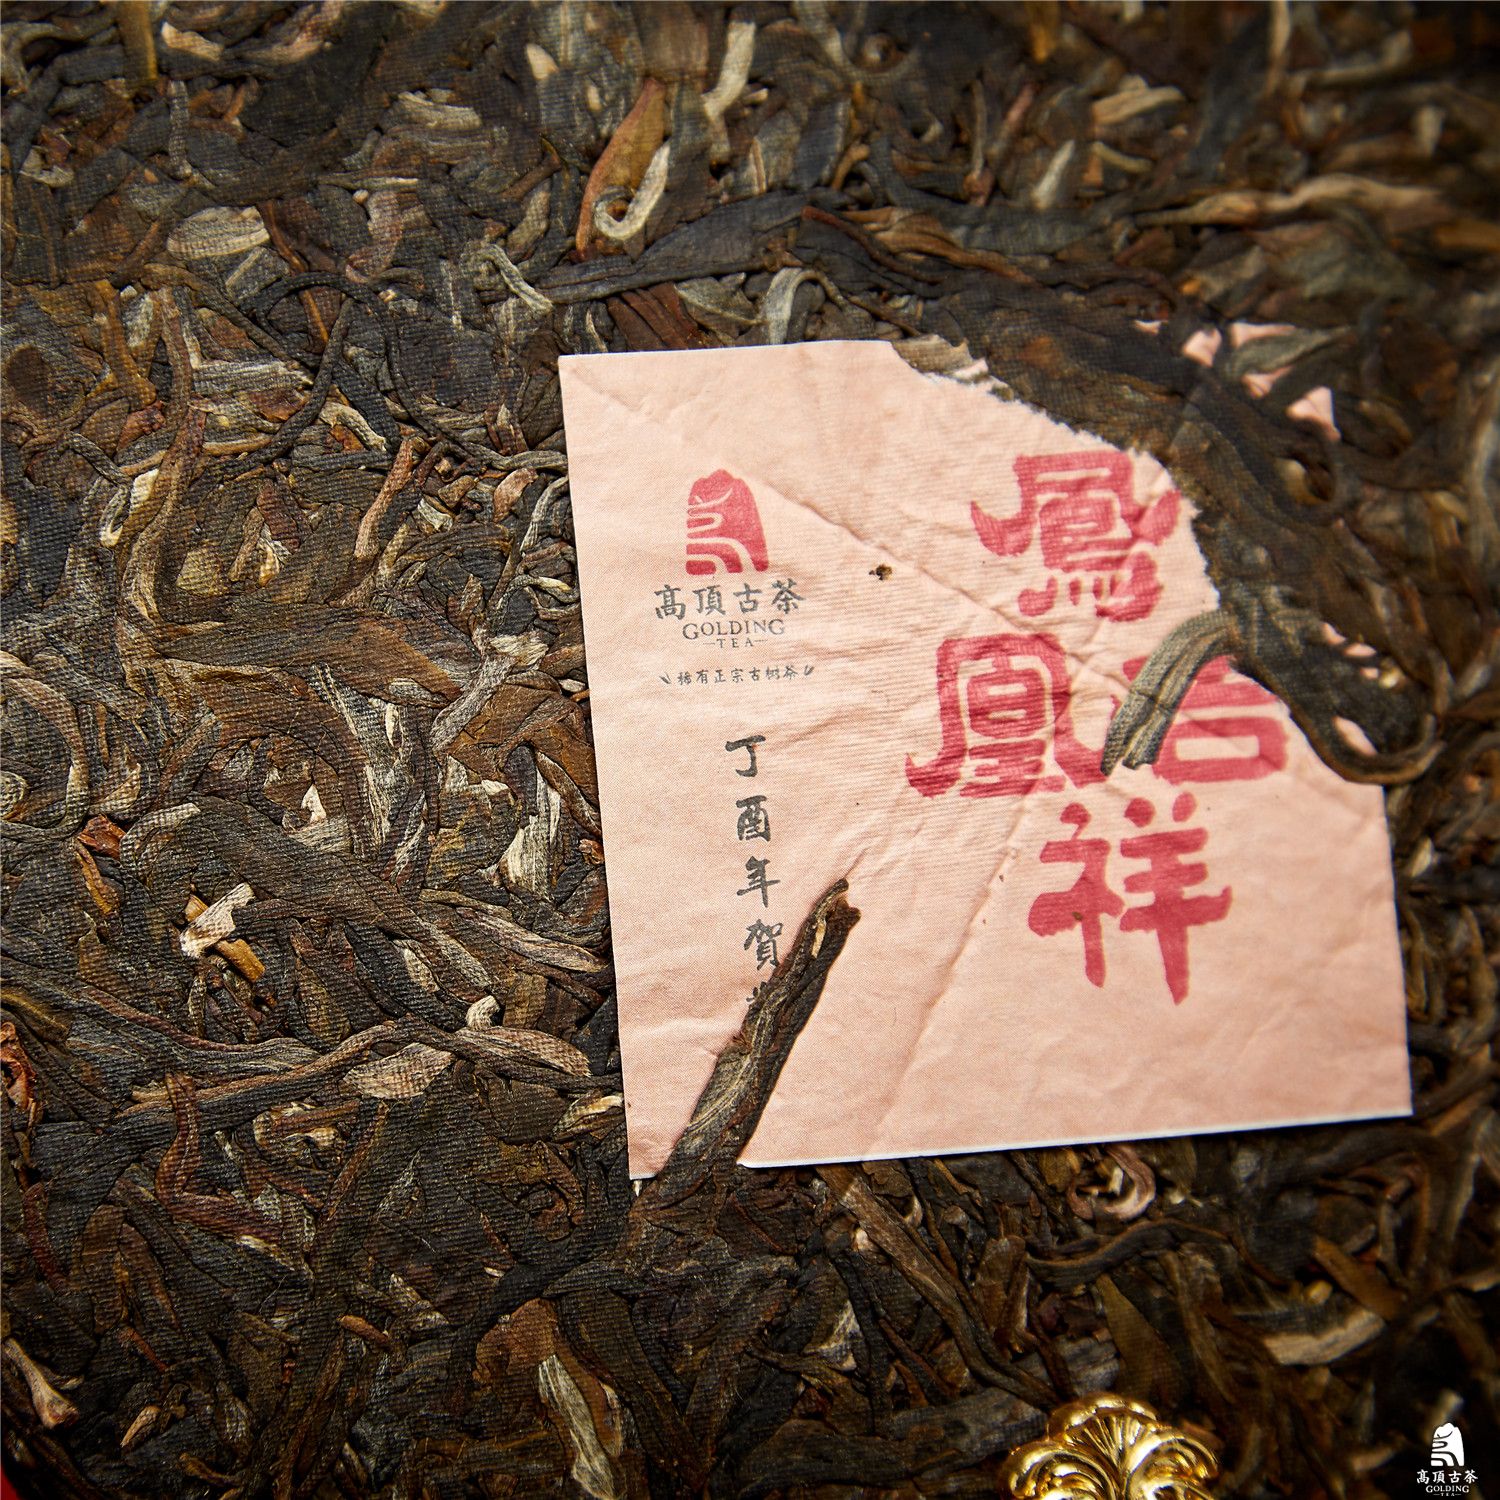 高頂古茶
GOLDING
TEA
稀有正宗古树茶
丁酉年賀
鳳凰
吉祥
高頂古茶
GOLDING
TEA